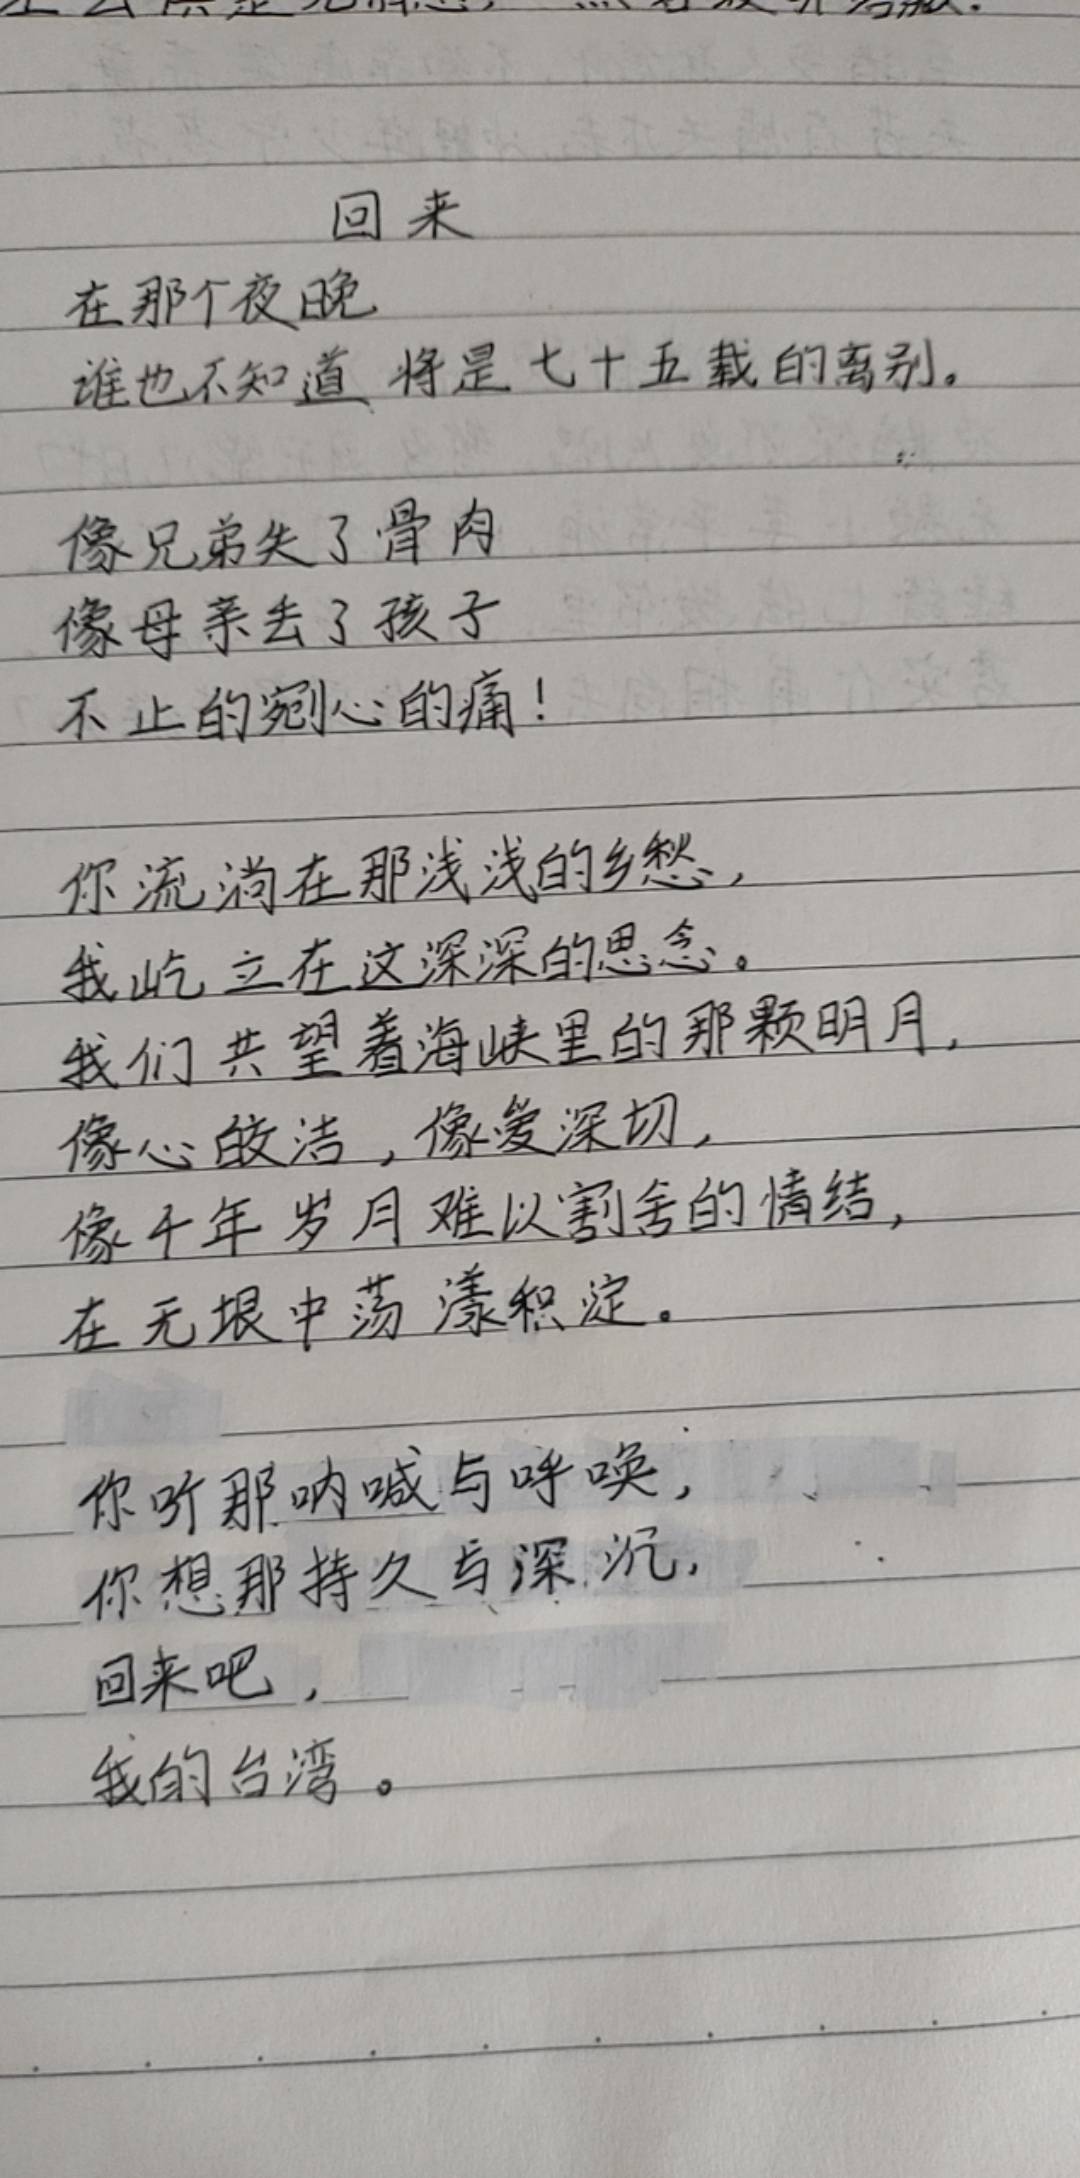 回来
在那个夜晚
谁也不知道 将是七十五载的离别。
像兄弟失了骨肉
像母亲丢了孩子
不止的剜心的痛！
你流淌在那浅浅的乡愁，
我屹立在这深深的思念。
我们共望着海峡里的那颗明月，
像心皎洁，像爱深切，
像千年岁月难以割舍的情结，
在无垠中荡漾积淀。
你听那呐喊与呼唤，
你想那持久与深沉，
回来吧，
我的台湾。